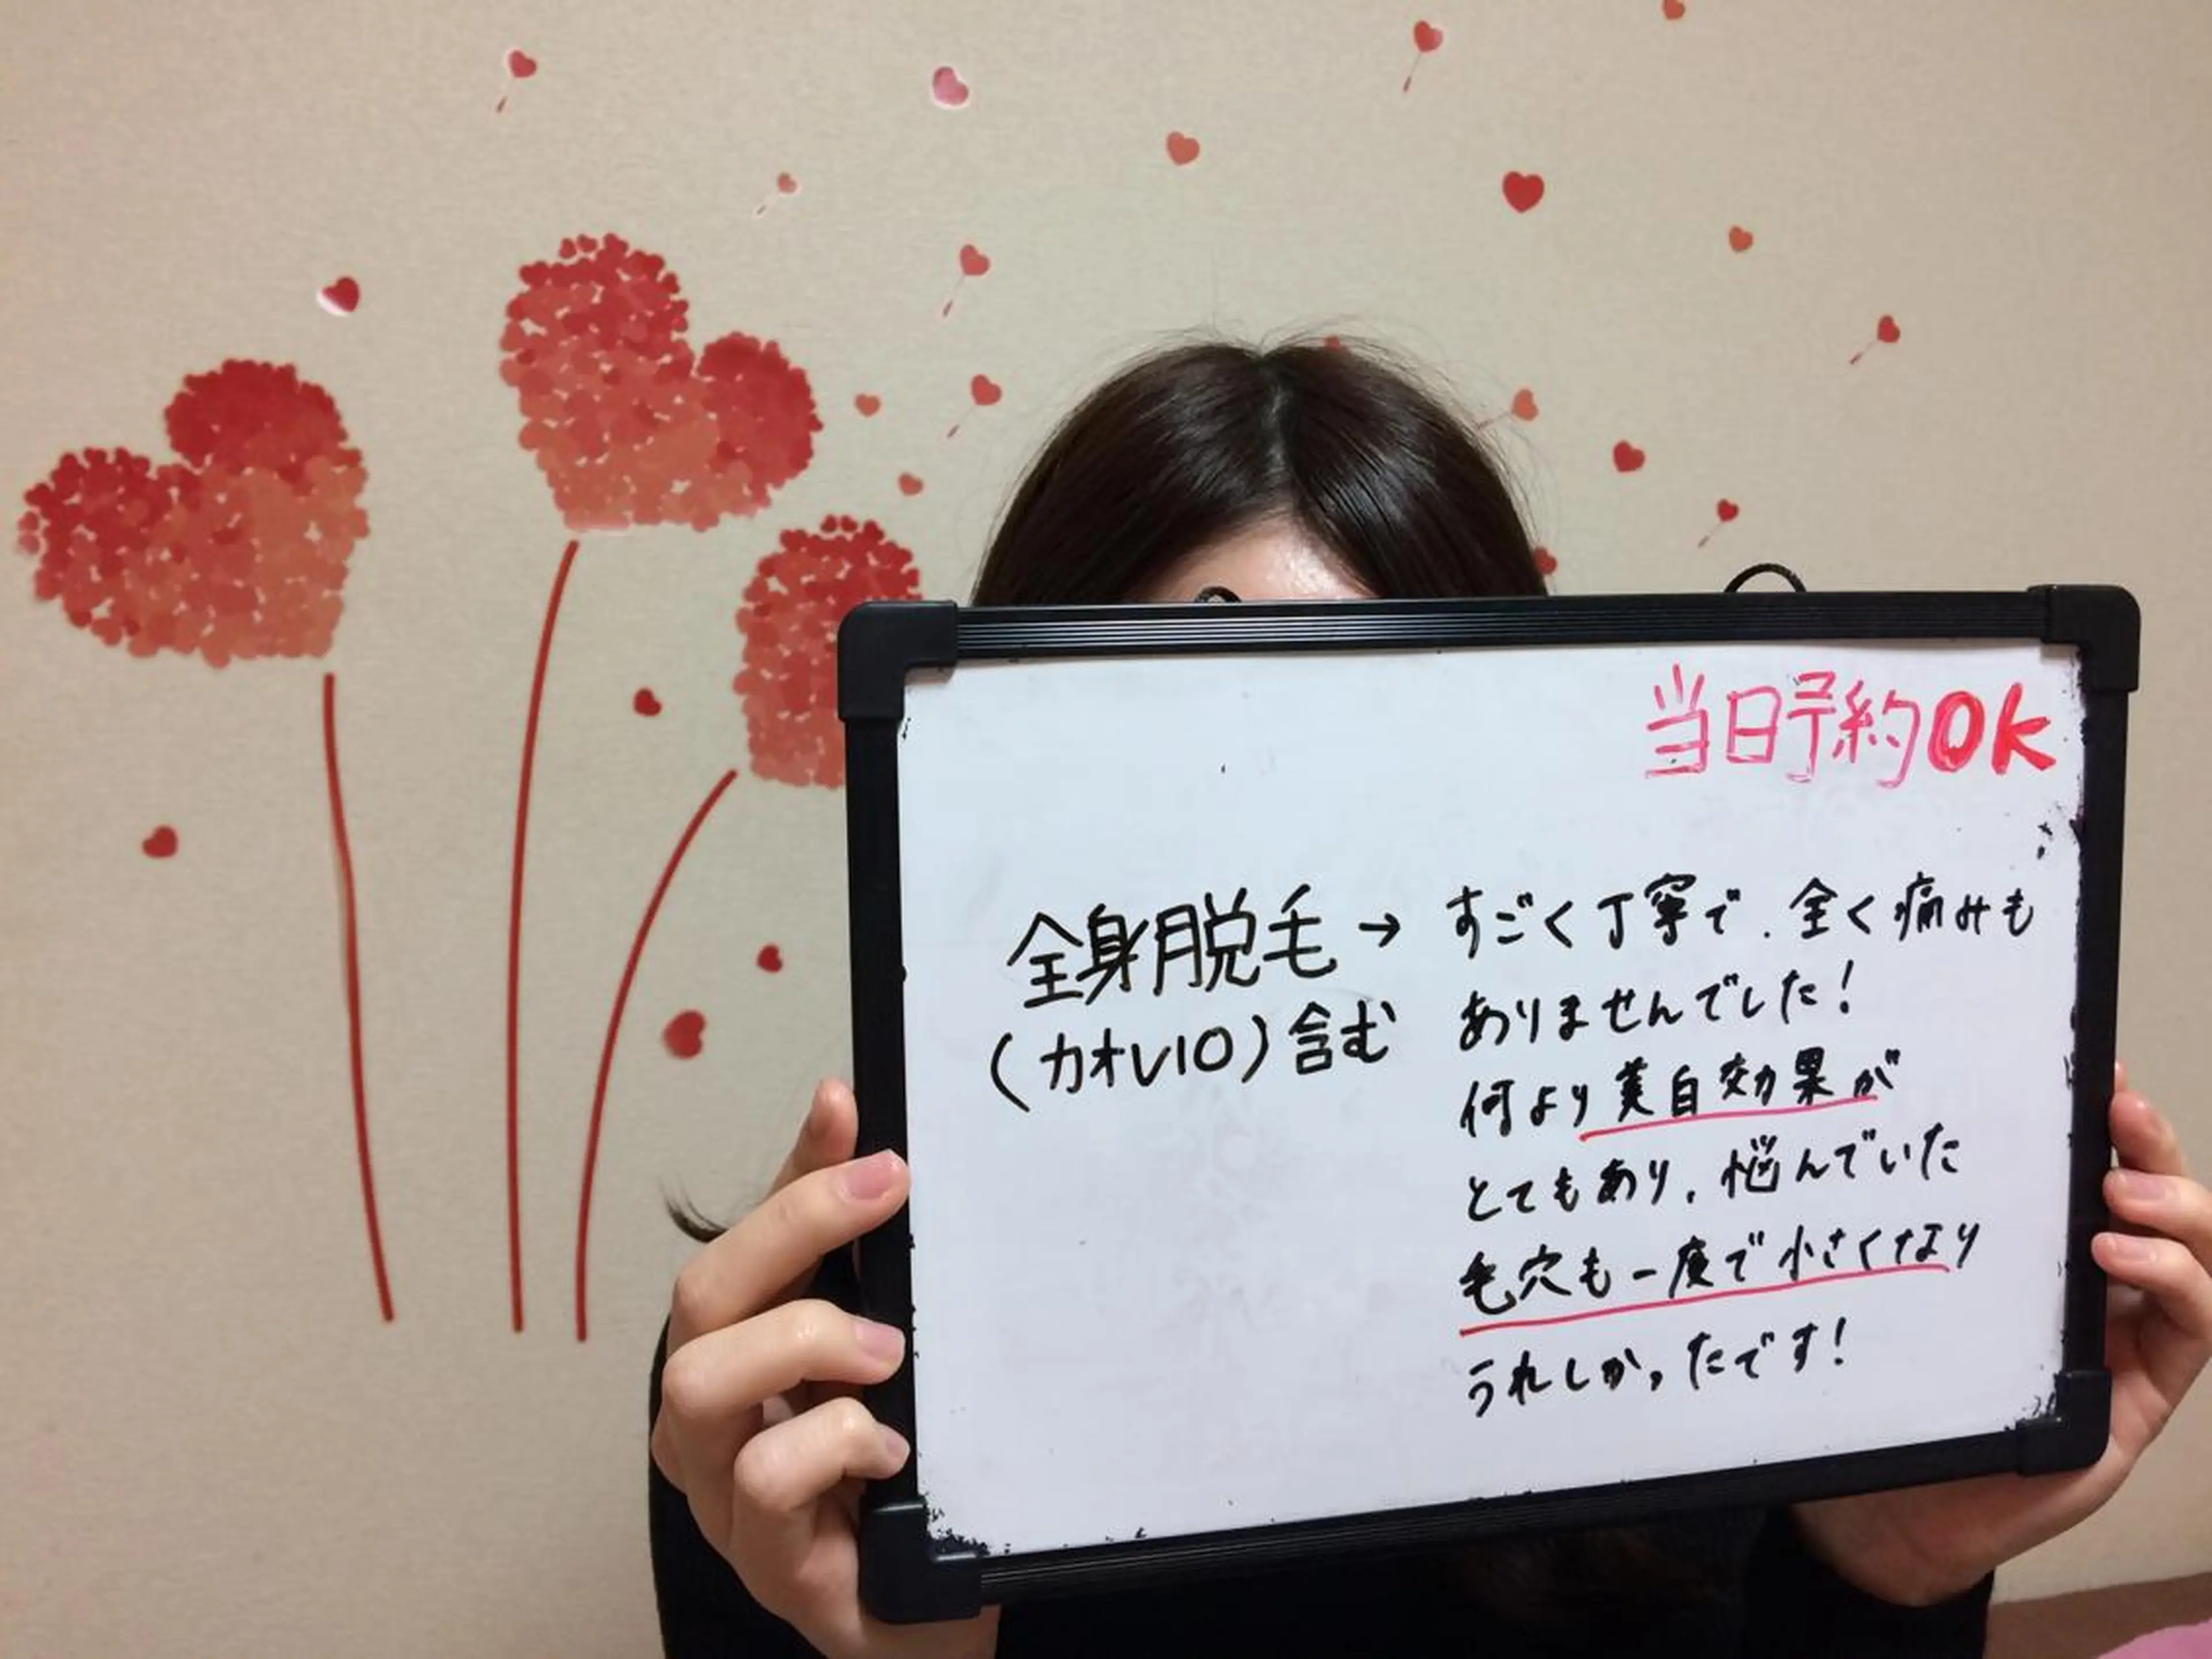 当日予約OK
全身脱毛→
(カオVIO)含む
すごく丁寧で、全く痛みも
ありませんでした!
何より美白効果が
とてもあり、悩んでいた
毛穴も一度で小さくなり
うれしかったです!